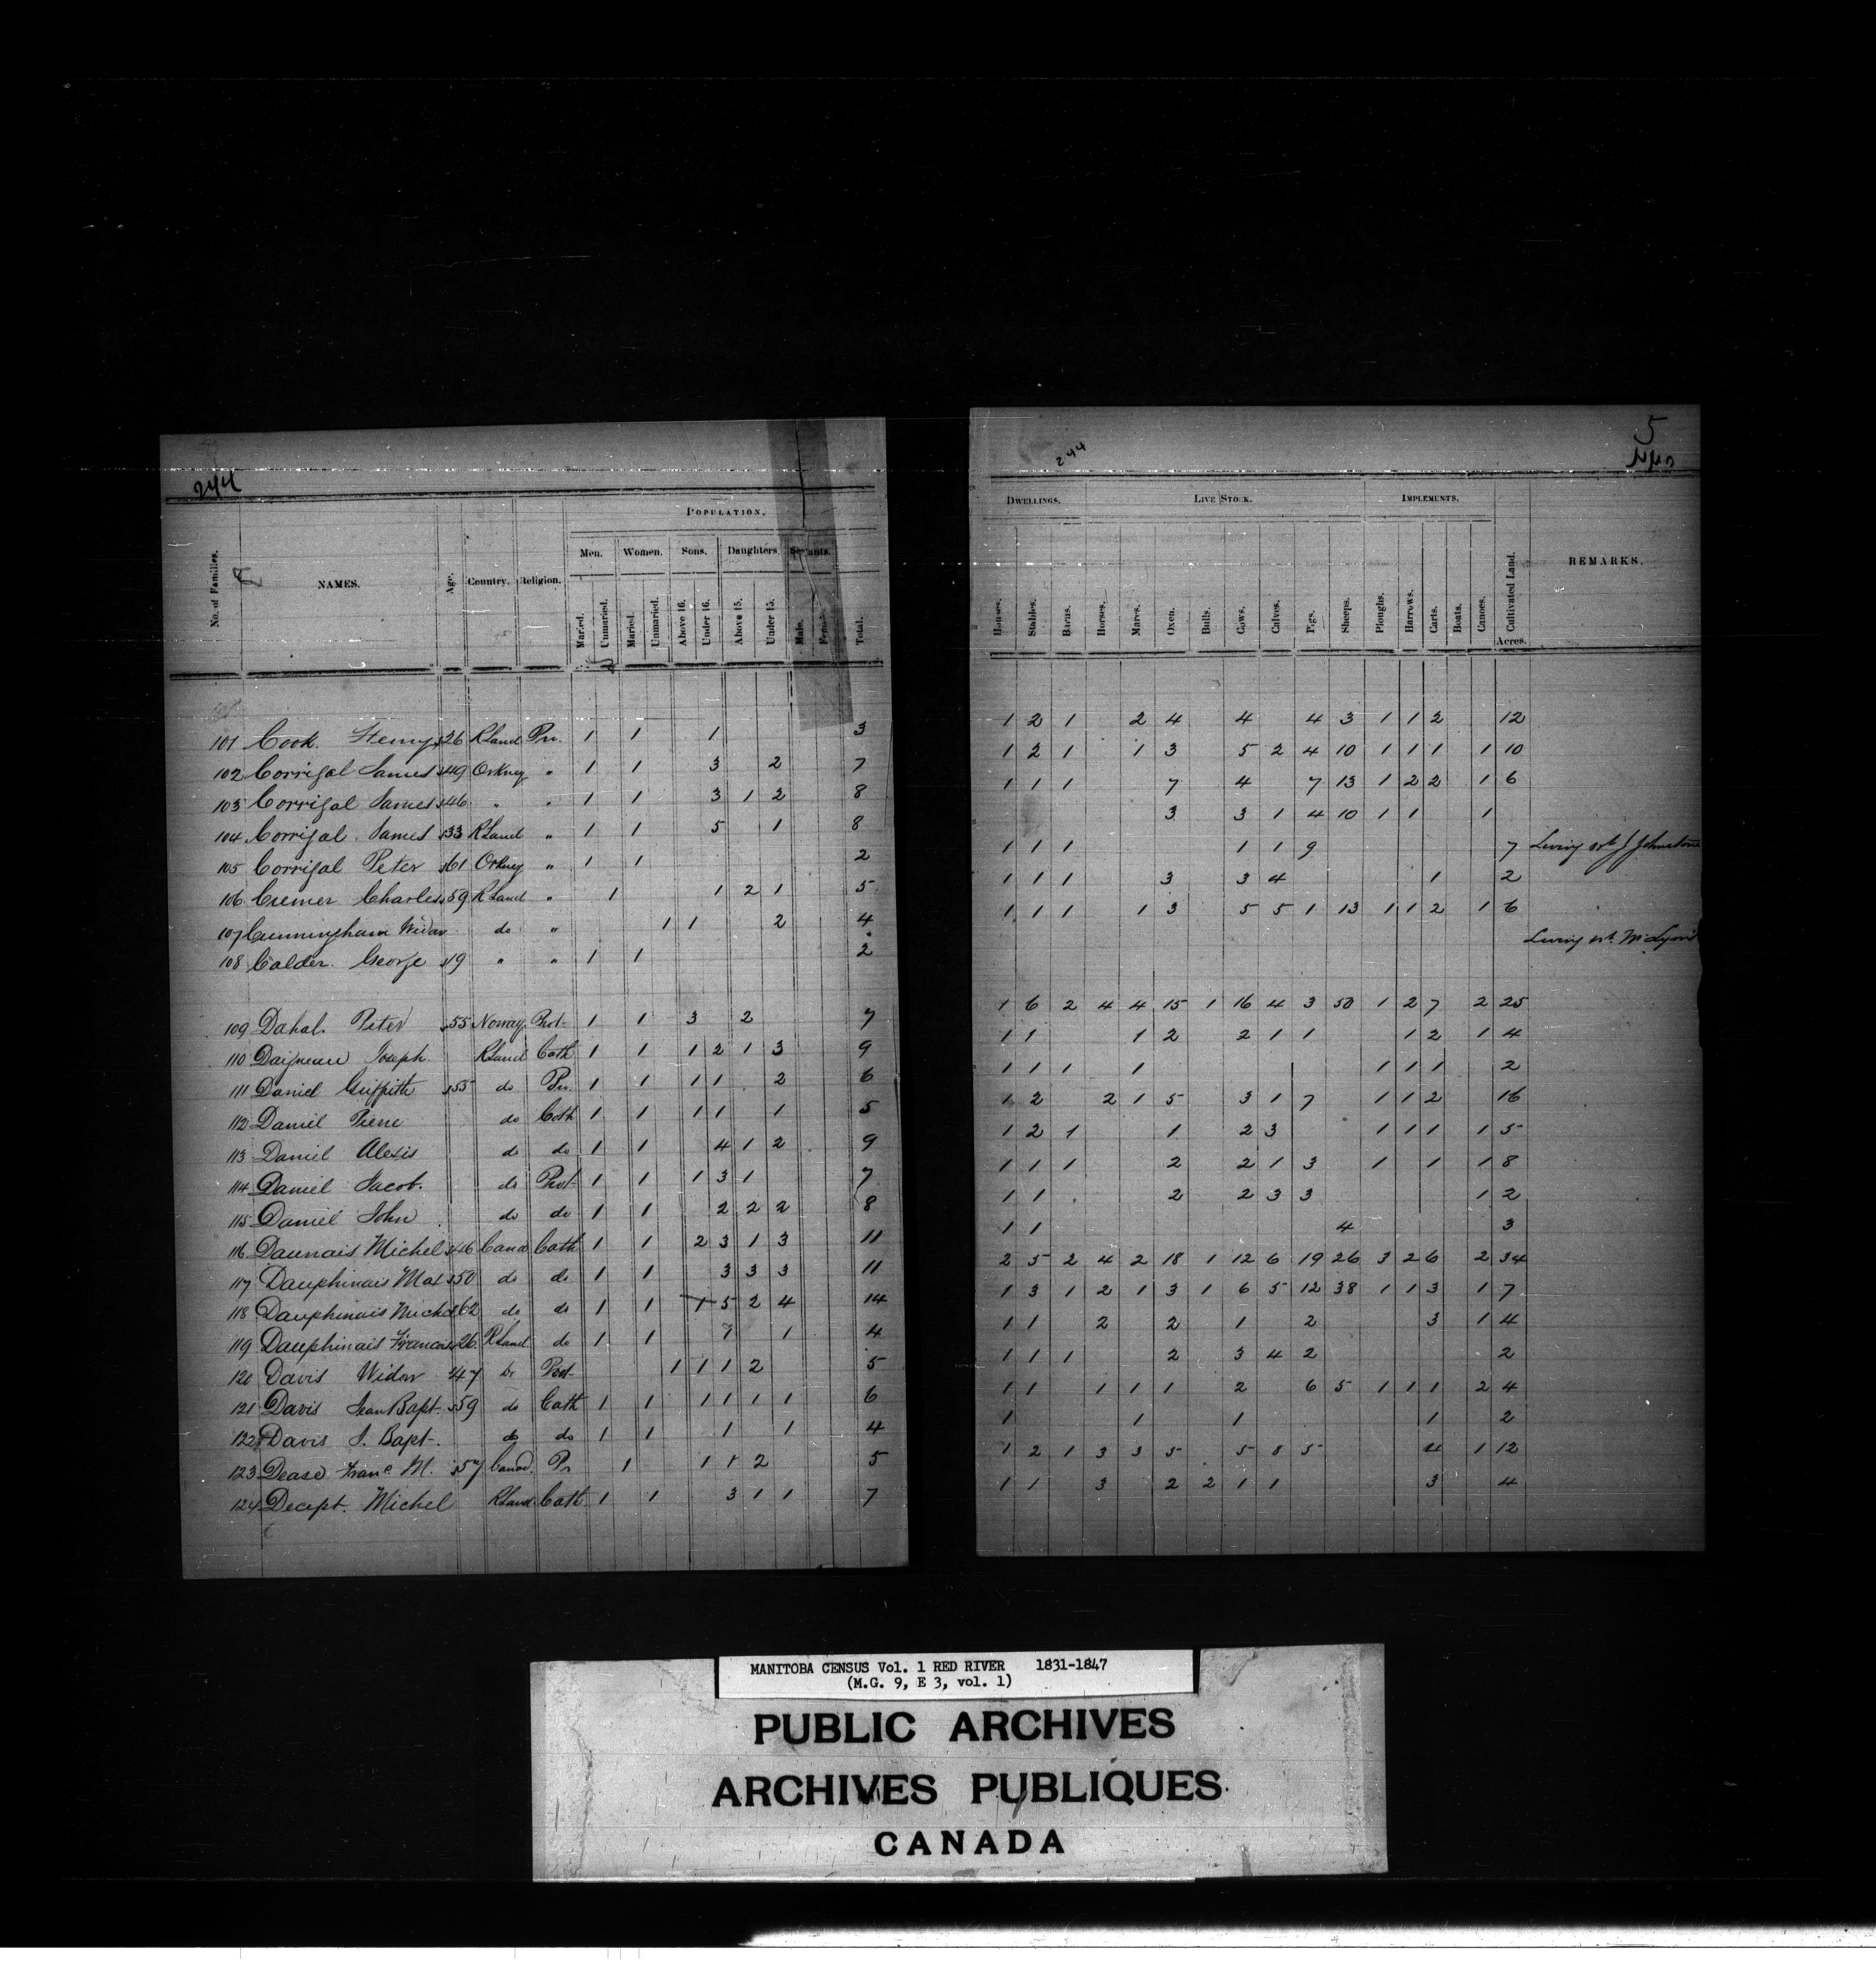 244
POPULATION.
No. of Families. NAMES. Age. Country. Religion. Men. Women. Sons. Daughters. Servants. Total.
Maried. Unmaried. Maried. Unmaried. Above 16. Under 16. Above 15. Under 15. Male. Female.
101 Cook. Henry 26 R Land Pr. 1 1 1 3
102 Corrigal James 49 Orkney " 1 1 3 2 7
103 Corrigal James 46 " " 1 1 3 1 2 8
104 Corrigal James 33 R Land " 1 1 5 1 8
105 Corrigal Peter 61 Orkney " 1 1 2
106 Cumer Charles 59 R Land " 1 1 2 1 5
107 Cunningham Widow do " 1 1 2 4
108 Calder George 19 " " 1 1 2
109 Dahal. Peter 55 Norway Prot 1 1 3 2 7
110 Daigneau Joseph R Land Cath 1 1 1 2 1 3 9
111 Daniel Griffith 55 do Pr. 1 1 1 1 2 6
112 Daniel Pierre do Cath 1 1 1 1 1 5
113 Daniel Alexis do do 1 1 4 1 2 9
114 Daniel Jacob. do Prot 1 1 1 3 1 7
115 Daniel John do do 1 1 2 2 2 8
116 Daunais Michel 46 Cana Cath 1 1 2 3 1 3 11
117 Dauphinais Max 50 do do 1 1 3 3 3 11
118 Dauphinais Michel 62 do do 1 1 1 5 2 4 14
119 Dauphinais Francois 26 R Land do 1 1 1 1 4
120 Davis Widow 47 Do Prot 1 1 1 2 5
121 Davis Jean Bapt. 59 do Cath 1 1 1 1 1 1 6
122 Davis J. Bapt. do do 1 1 1 1 4
123 Dease Franc M. 57 Canad. Pr 1 1 1 2 5
124 Decept. Michel R Land Cath 1 1 3 1 1 7
5
244
DWELLINGS. LIVE STOCK. IMPLEMENTS.
Houses. Stables. Barns. Horses. Mares. Oxen. Bulls. Cows. Calves. Pigs. Sheeps. Ploughs. Harrows. Carts. Boats. Canoes. Cultivated Land. Acres. REMARKS.
1 2 1 2 4 4 4 3 1 1 2 12
1 2 1 1 3 5 2 4 10 1 1 1 1 10
1 1 1 7 4 7 13 1 2 2 1 6
3 3 1 4 10 1 1 1
1 1 1 1 1 9 7 Living with J Johnstone
1 1 1 3 3 4 1 2
1 1 1 1 3 5 5 1 13 1 1 2 1 6
Living wth Mr Lyons
1 6 2 4 4 15 1 16 4 3 50 1 2 7 2 25
1 1 1 2 2 1 1 1 2 1 4
1 1 1 1 1 1 1 2
1 2 2 1 5 3 1 7 1 1 2 16
1 2 1 1 2 3 1 1 1 1 5
1 1 1 2 2 1 3 1 1 1 8
1 1 2 2 3 3 1 2
1 1 4 3
2 5 2 4 2 18 1 12 6 19 26 3 2 6 2 34
1 3 1 2 1 3 1 6 5 12 38 1 1 3 1 7
1 1 2 2 1 2 3 1 4
1 1 1 2 3 4 2 2
1 1 1 1 1 2 6 5 1 1 1 2 4
1 1 1 1 2
1 2 1 3 3 5 5 8 5 4 1 12
1 1 3 2 2 1 1 3 4
MANITOBA CENSUS Vol. 1 RED RIVER 1831-1847
(M.G. 9, E 3, vol. 1)
PUBLIC ARCHIVES
ARCHIVES PUBLIQUES
CANADA